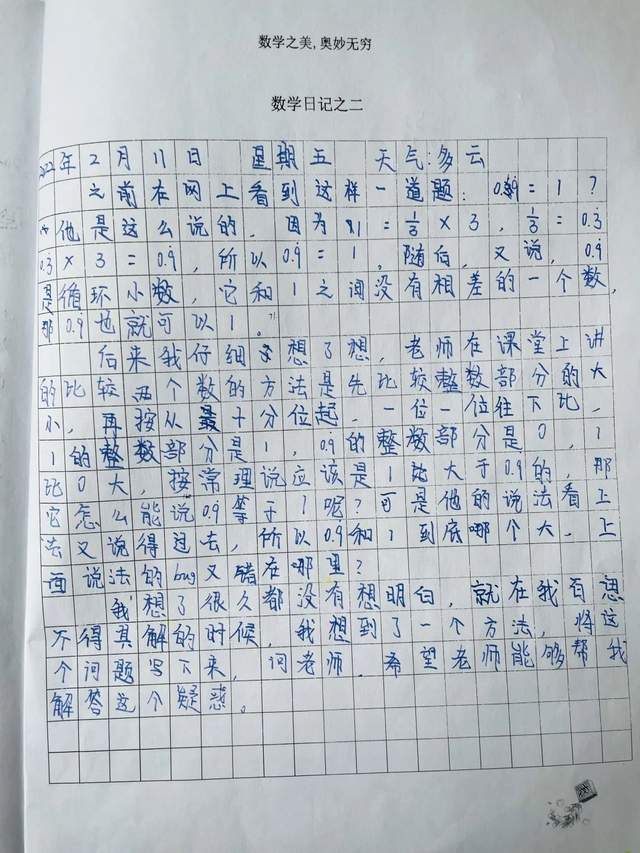 数学之美,奥妙无穷
数学日记之二
2022年2月11日 星期五 天气:多云
之前在网上看到这样一道题:0.9̇=1?
他是这么说的,因为1=1/3×3,1/3=0.3̇
0.3̇×3=0.9̇,所以0.9̇=1,随后,又说,0.9̇
是循环小数,它和1之间没有相差的一个数,
那0.9̇也就可以1。
后来我仔细想了想,老师在课堂上讲
的比较两个数的方法是先比较整数部分的大
小,再按从最十分位起,一位一位往下比,
1的整数部分是1,0.9̇的整数部分是0,1
比0大,按常理说应该是1比大于0.9̇的,那
它怎么能说0.9̇等于1呢?可是他的说法看上
去又说得过去,所以0.9̇和1到底哪个大,上
面说法的bug又错在哪里?
我想了很久都没有想明白,就在我百思
不得其解的时候,我想到了一个方法,将这
个问题写下来,问老师,希望老师能够帮我
解答这个疑惑。